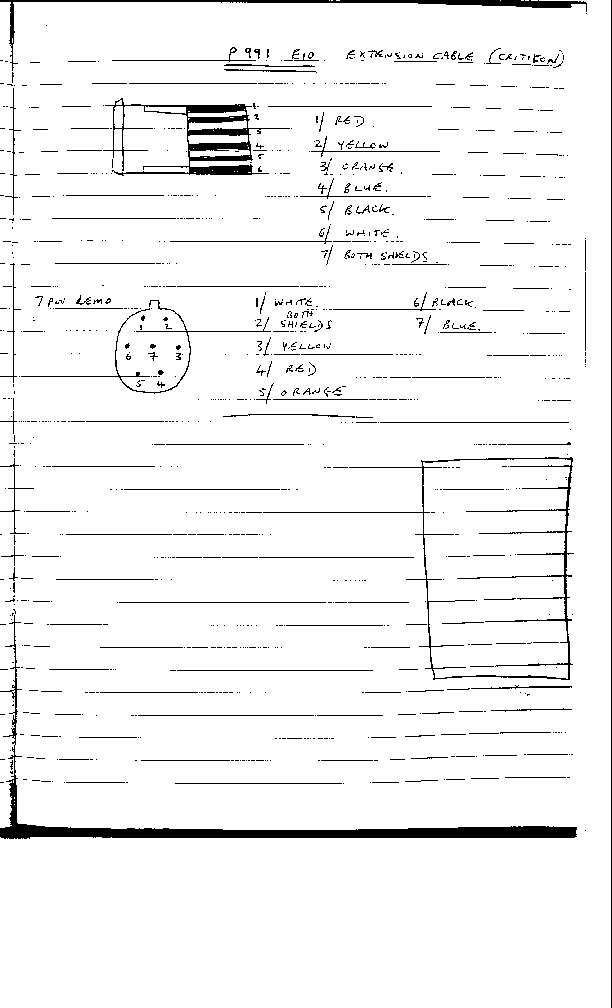 P 991 E10 EXTENSION CABLE (CRITIKON)
1 1/ RED.
2 2/ YELLOW
3 3/ ORANGE.
4 4/ BLUE.
5 5/ BLACK.
6 6/ WHITE.
7/ BOTH SHIELDS.
7 PIN LEMO
1 2
6 7 3
5 4
1/ WHITE.
2/ BOTH SHIELDS
3/ YELLOW
4/ RED
5/ ORANGE
6/ BLACK.
7/ BLUE.